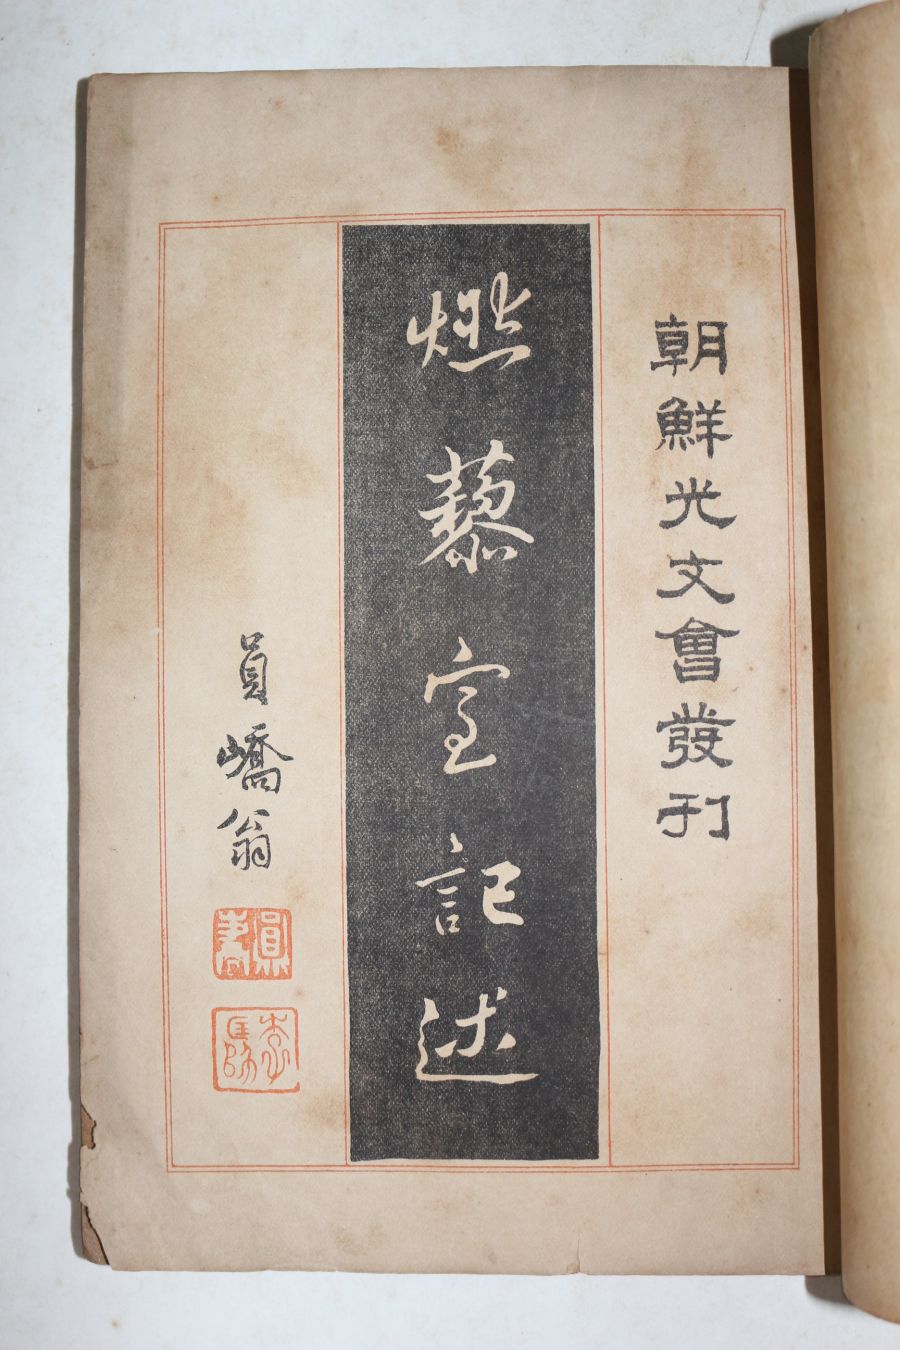 朝鮮光文會發刊
燃藜室記述
員嶠翁